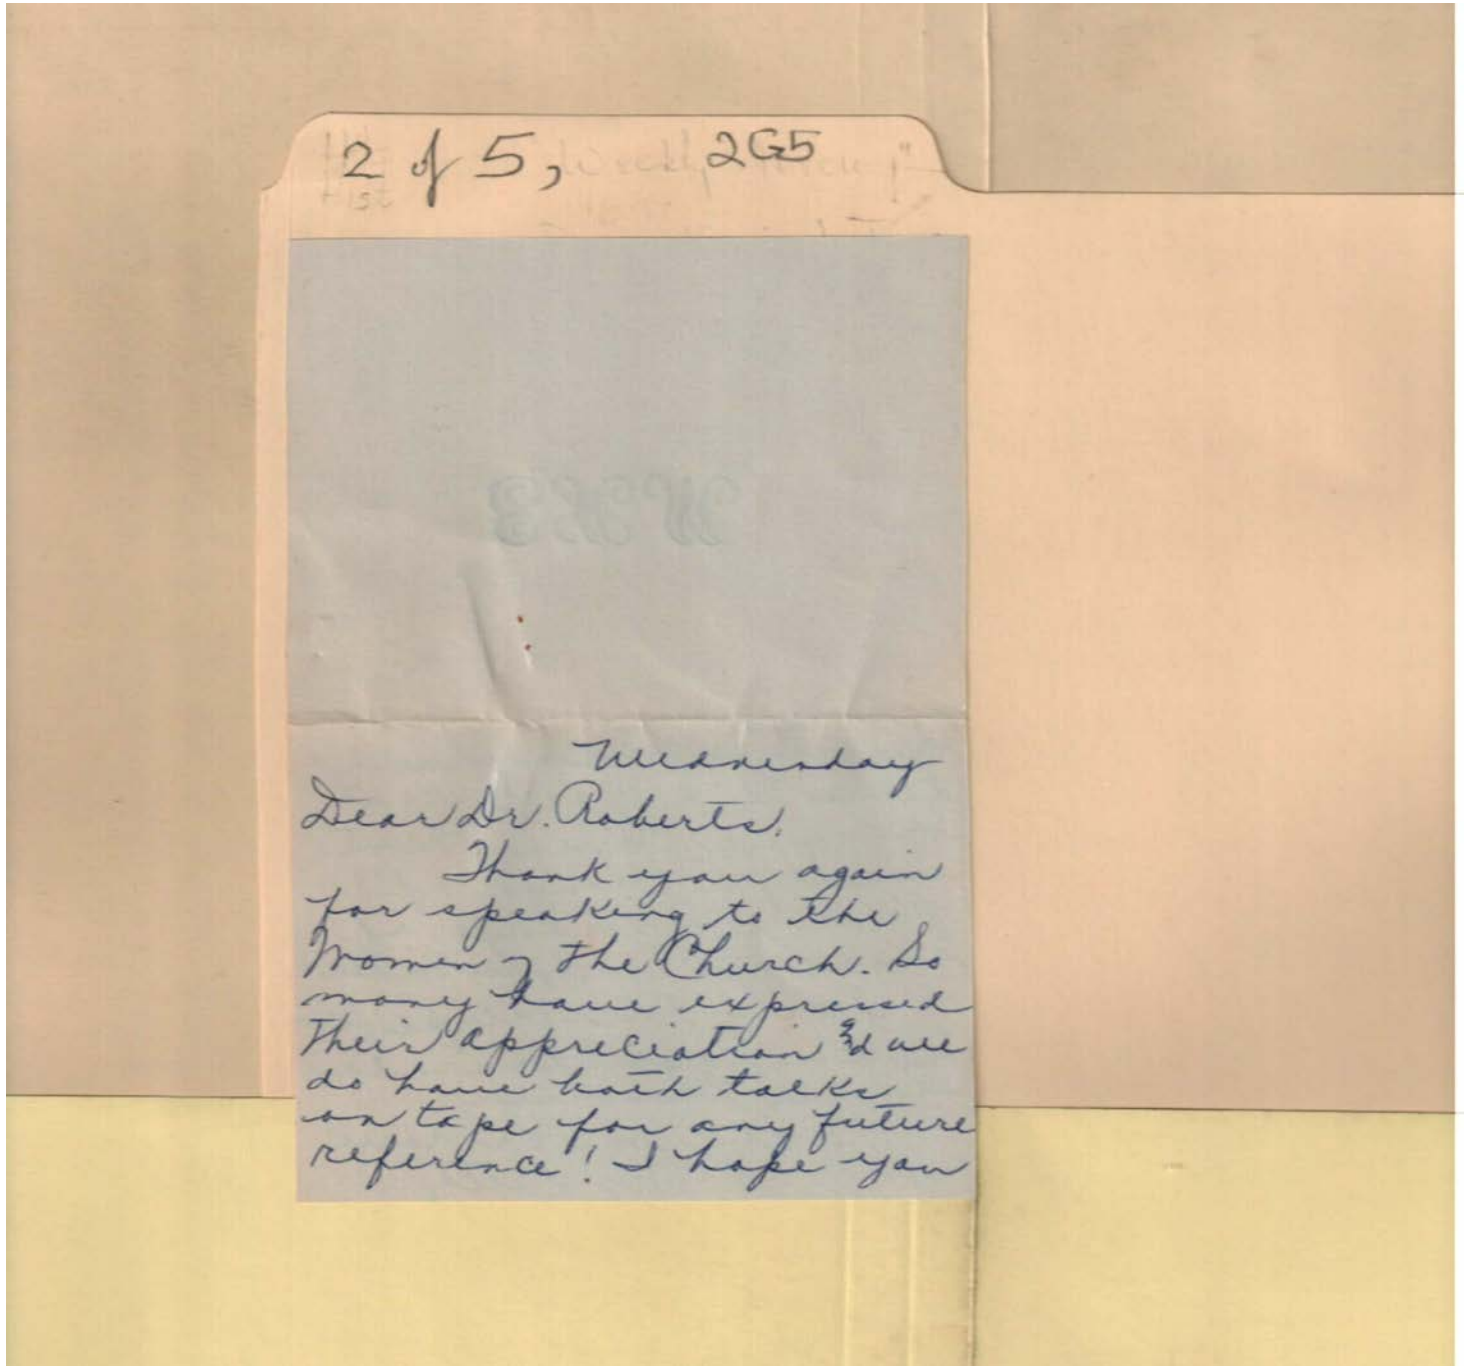 2 of 5, 2G5
Wednesday
Dear Dr. Roberts,
Thank you again
for speaking to the
Women of the Church. So
many have expressed
their appreciation and we
do have both talks
on tape for any future
reference! I hope you